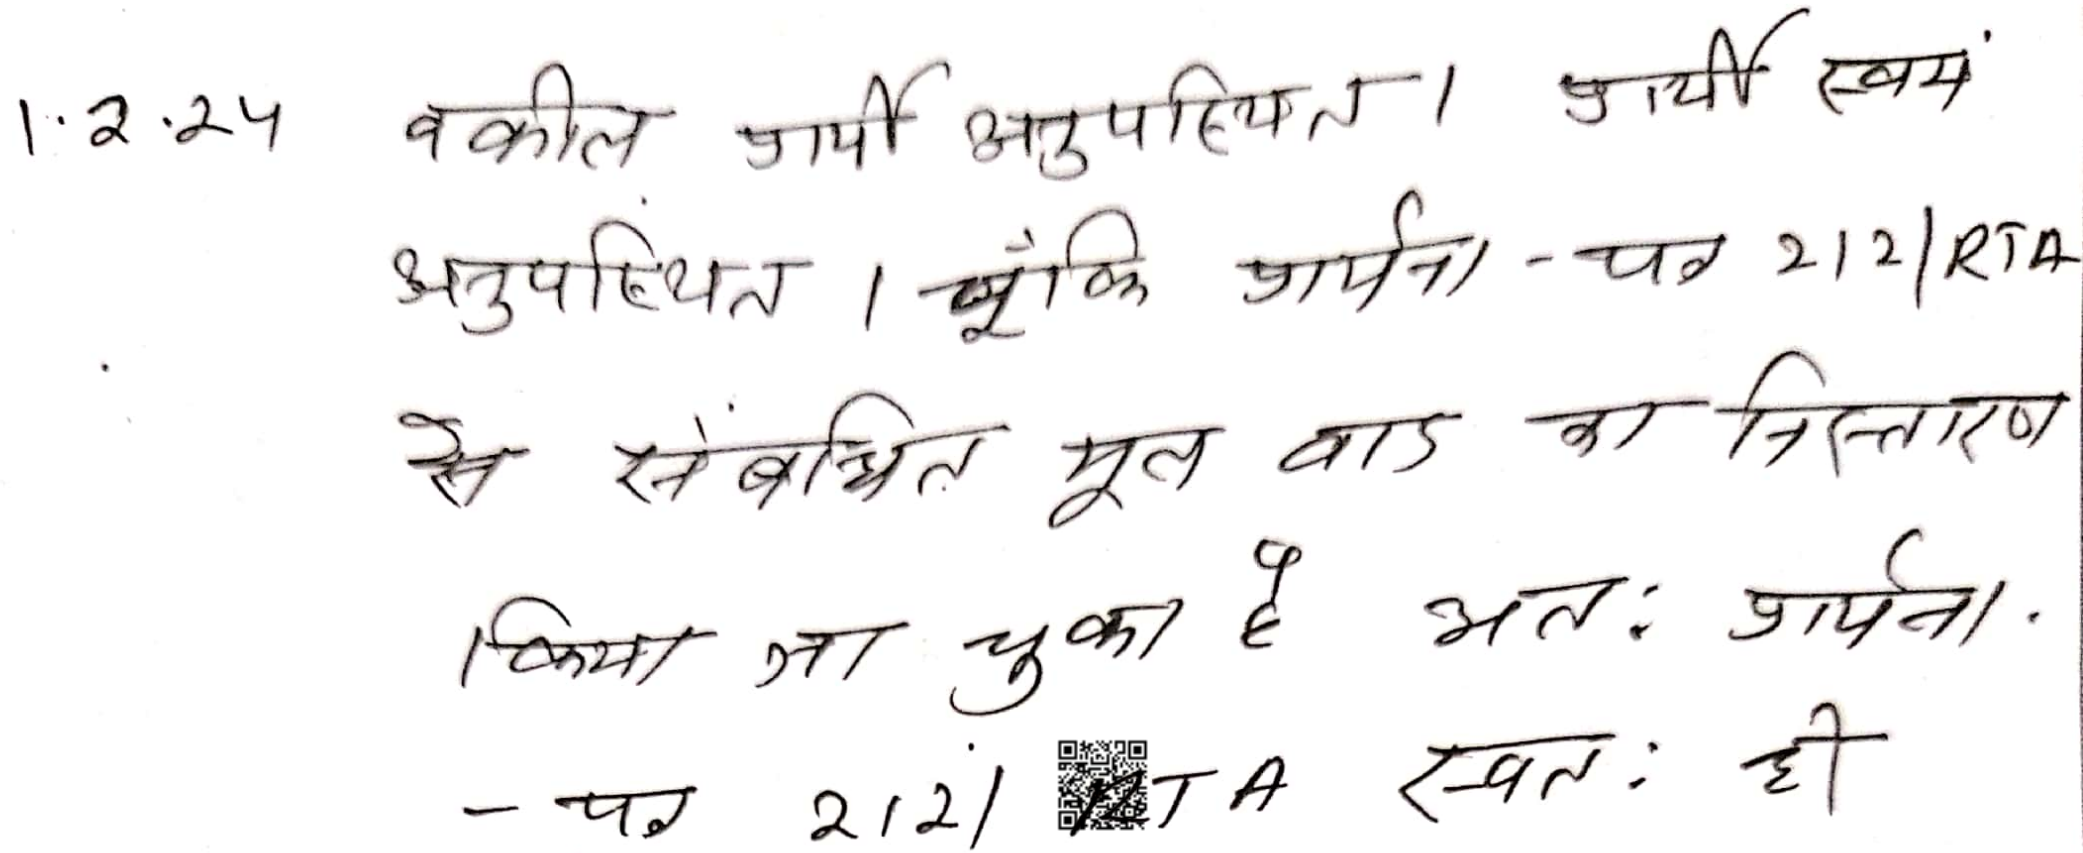 1.2.24 वकील प्रार्थी अनुपस्थित । प्रार्थी स्वयं
अनुपस्थित । चूंकि प्रार्थना - पत्र 212/RTA
से संबंधित मूल वाद का निस्तारण
किया जा चुका है अत: प्रार्थना
- पत्र 212/ RTA स्वत: ही